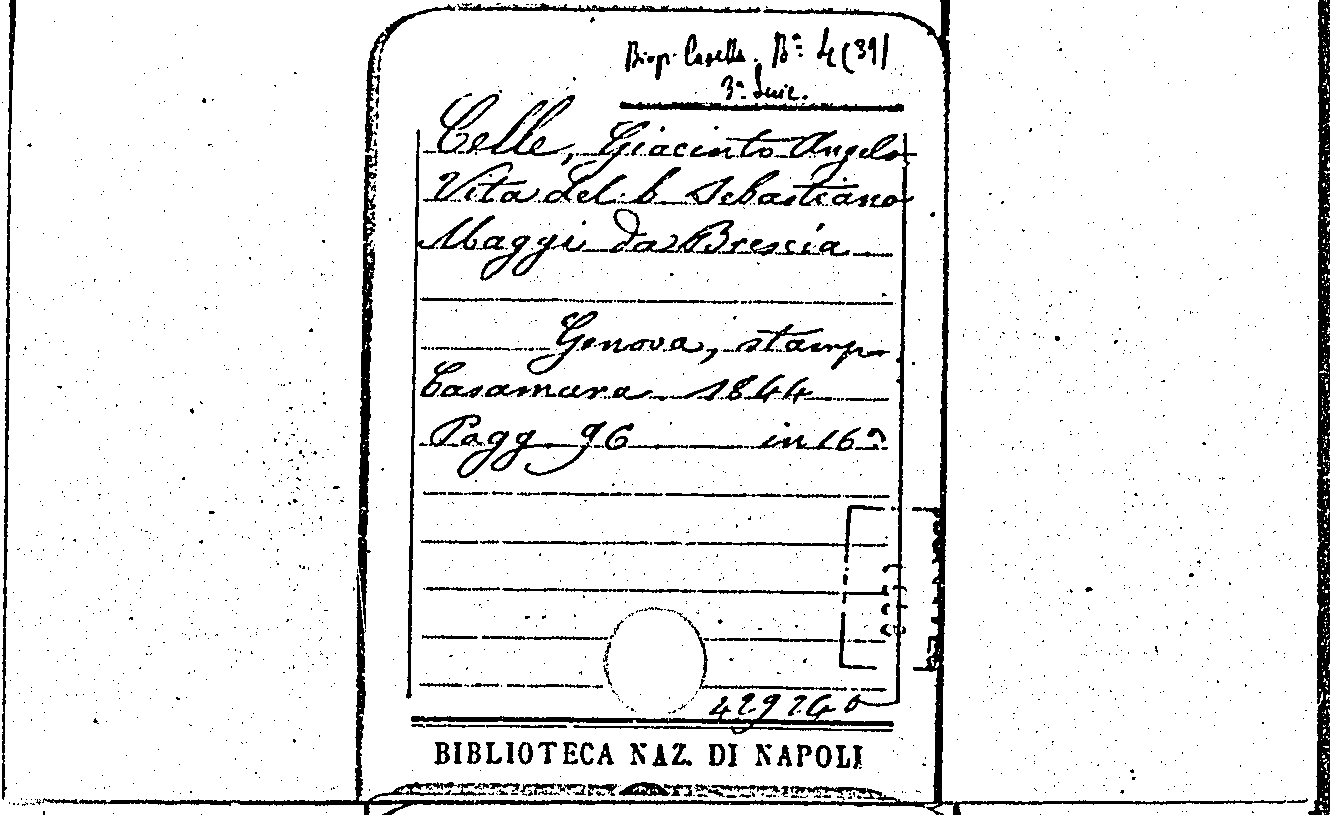 Biogr. Casella. Bª 4 (39)
3ª Serie.
Celle, Giacinto Angelo
Vita del b. Sebastiano
Maggi da Brescia
Genova, stamp.
Casamara 1844
Pagg. 96 in 16º
BIBLIOTECA NAZ. DI NAPOLI